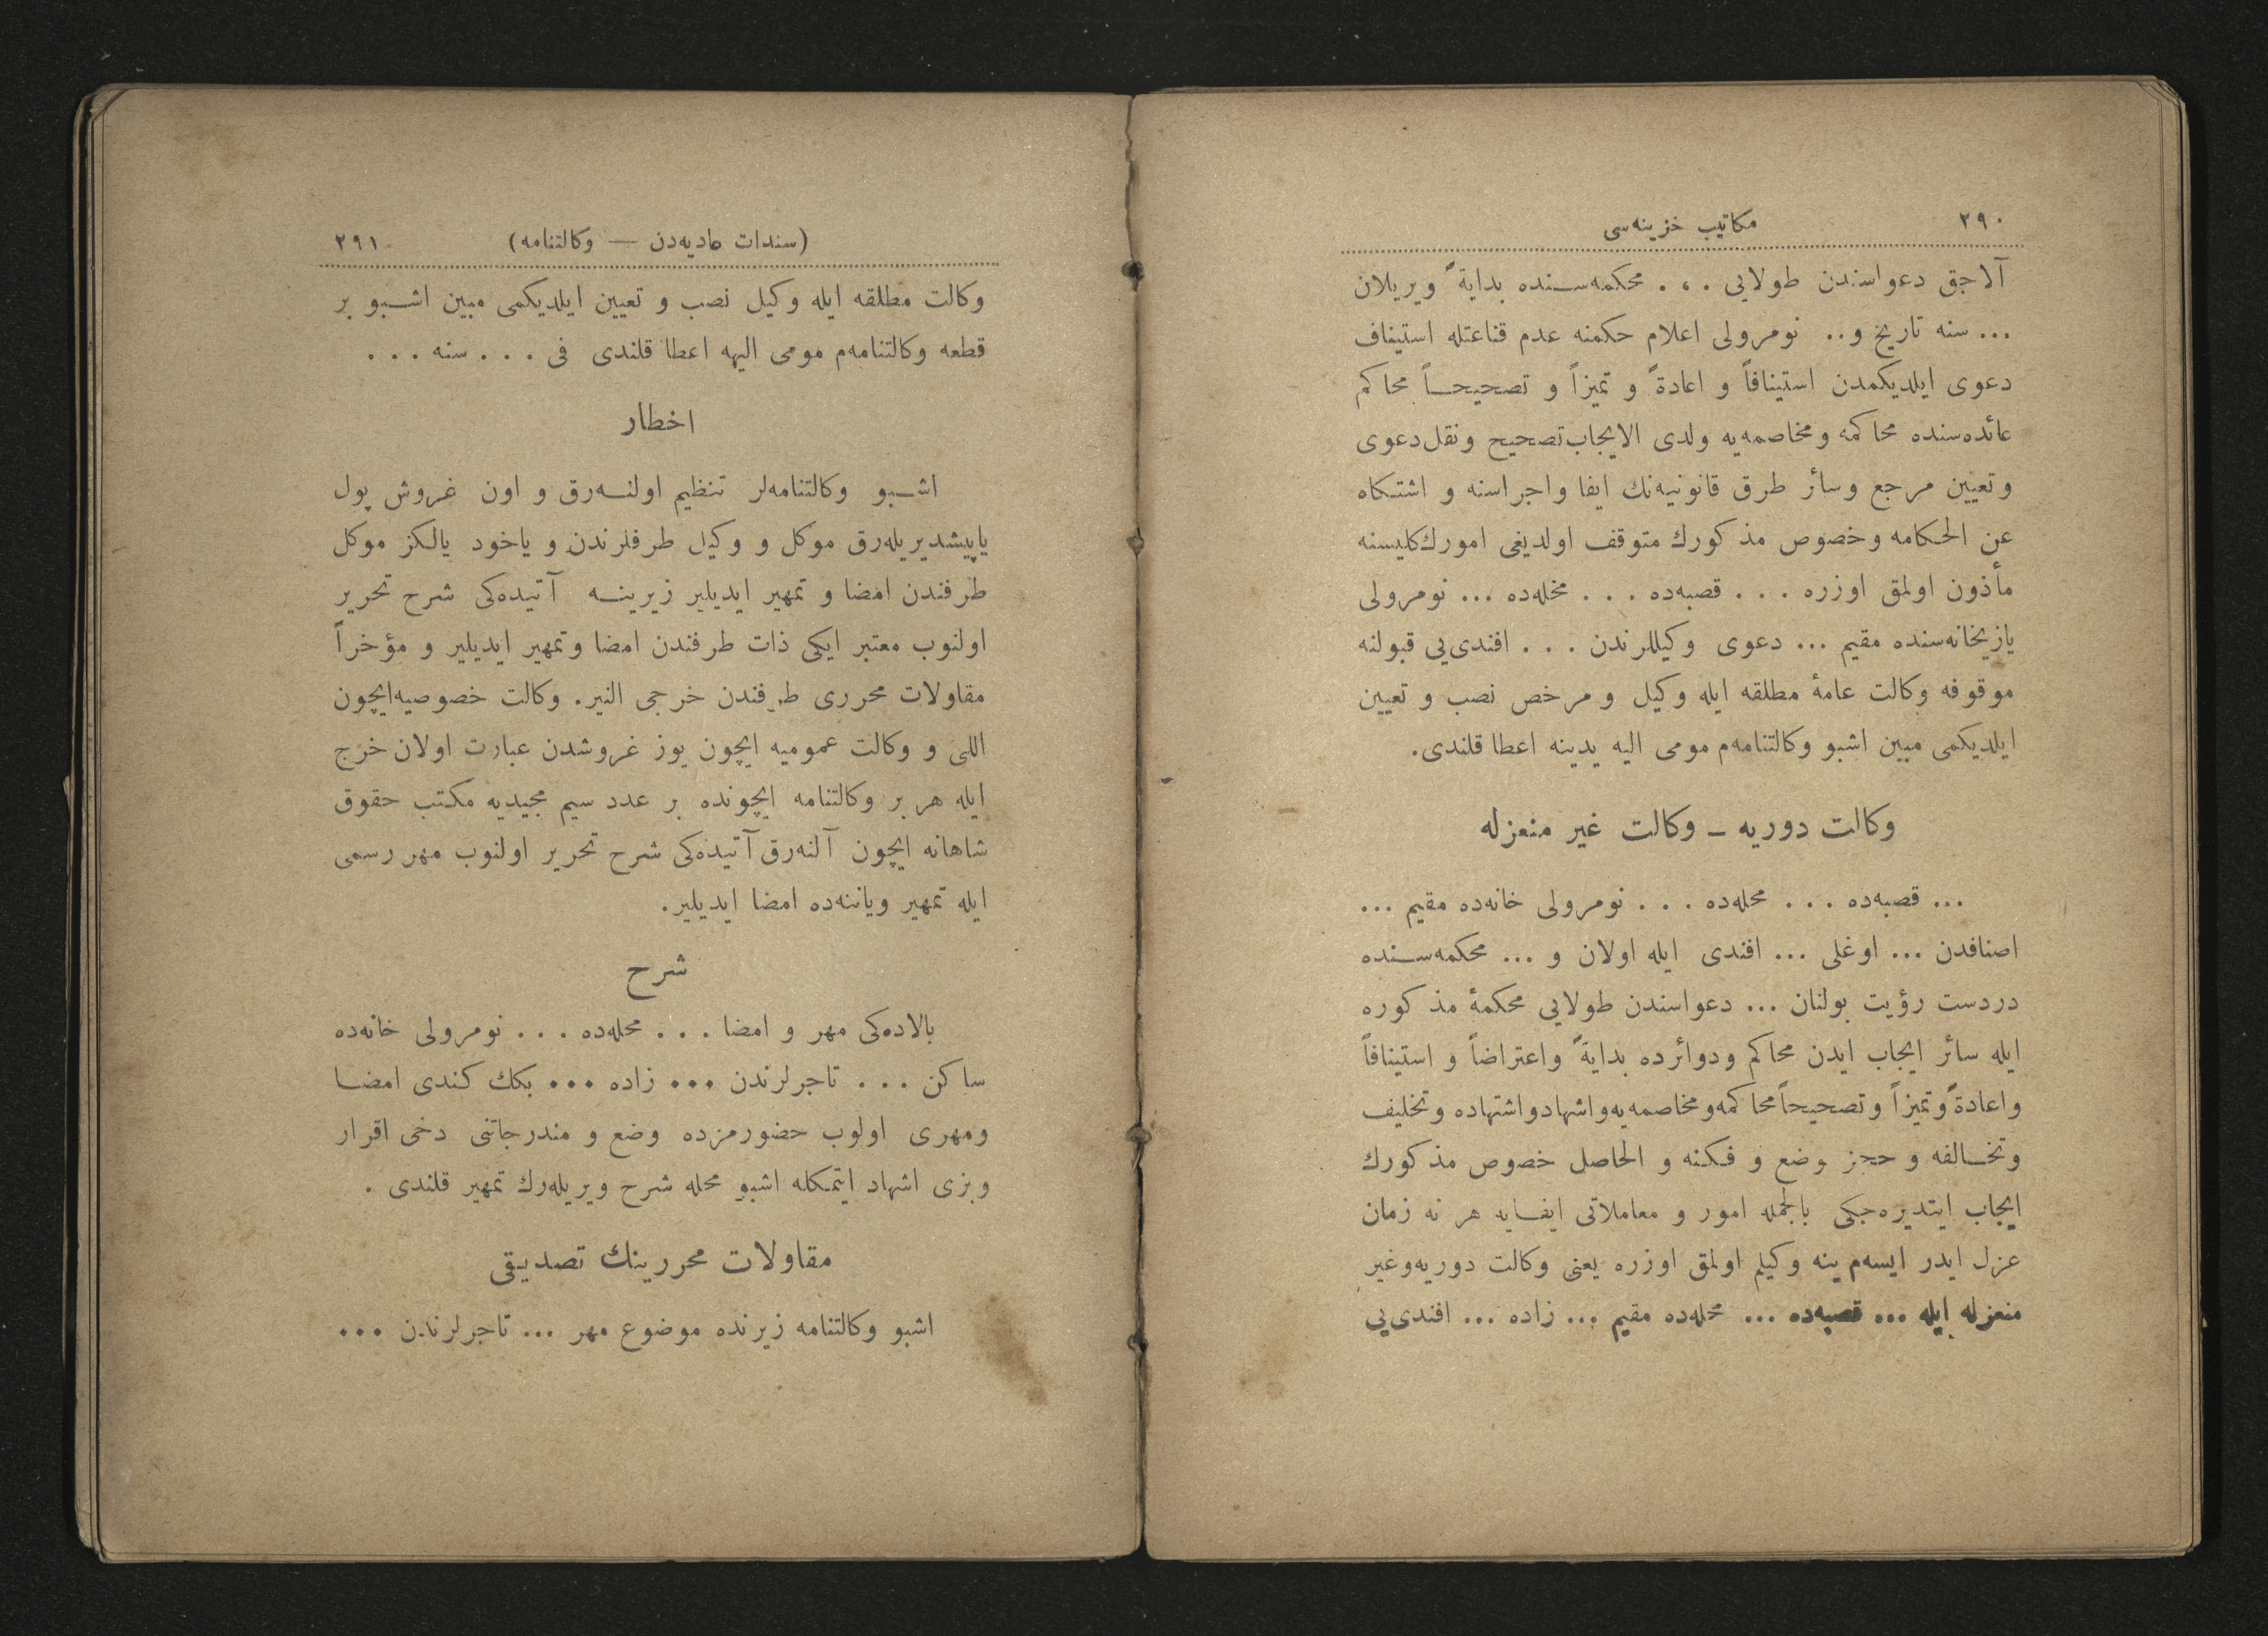 ٢٩٠ مكاتيب خزينه‌سى
آلاجق دعواسندن طولايى . . . محكمه‌سنده بدايةً ويريلان
... سنه تاريخ و.. نومرولى اعلام حكمنه عدم قناعتله استيناف
دعوى ايلديكمدن استينافاً و اعادةً و تميزاً و تصحيحاً محاكم
عائده‌سنده محاكمه و مخاصمه‌يه ولدى الايجاب تصحيح ونقل دعوى
وتعيين مرجع وسائر طرق قانونيه‌نك ايفا واجراسنه و اشتكاه
عن الحكامه وخصوص مذكورك متوقف اولديغى امورك كليسنه
مأذون اولمق اوزره . . . قصبه‌ده . . . محله‌ده ... نومرولى
يازيخانه‌سنده مقيم ... دعوى وكيللرندن . . . افندى‌يى قبولنه
موقوفه وكالت عامهٔ مطلقه ايله وكيل و مرخص نصب و تعيين
ايلديكمى مبين اشبو وكالتنامه‌م مومى اليه يدينه اعطا قلندى.
وكالت دوريه ـ وكالت غير منعزله
... قصبه‌ده . . . محله‌ده . . . نومرولى خانه‌ده مقيم ...
اصنافدن ... اوغلى ... افندى ايله اولان و ... محكمه‌سنده
دردست رؤيت بولنان ... دعواسندن طولايى محكمهٔ مذكوره
ايله سائر ايجاب ايدن محاكم ودوائرده بدايةً واعتراضاً و استينافاً
واعادةً وتميزاً وتصحيحاً محاكمه ومخاصمه‌يه واشهاد واشتهاده وتحليف
وتخالفه و حجز وضع و فكنه و الحاصل خصوص مذكورك
ايجاب ايتديره‌جكى بالجمله امور و معاملاتى ايفايه هر نه زمان
عزل ايدر ايسه‌م ينه وكيلم اولمق اوزره يعنى وكالت دوريه وغير
منعزله ايله ... قصبه‌ده ... محله‌ده مقيم ... زاده ... افندى‌يى
(سندات عاديه‌دن — وكالتنامه) ٢٩١
وكالت مطلقه ايله وكيل نصب و تعيين ايلديكمى مبين اشبو بر
قطعه وكالتنامه‌م مومى اليهه اعطا قلندى فى . . . سنه . . .
اخطار
اشبو وكالتنامه‌لر تنظيم اولنه‌رق و اون غروش پول
ياپيشديريله‌رق موكل و وكيل طرفلرندن و ياخود يالكز موكل
طرفندن امضا و تمهير ايديلير زيرينه آتيده‌كى شرح تحرير
اولنوب معتبر ايكى ذات طرفندن امضا وتمهير ايديلير و مؤخراً
مقاولات محررى طرفندن خرجى النير. وكالت خصوصيه‌ايچون
اللى و وكالت عموميه ايچون يوز غروشدن عبارت اولان خرج
ايله هر بر وكالتنامه ايچونده بر عدد سيم مجيديه مكتب حقوق
شاهانه ايچون آلنه‌رق آتيده‌كى شرح تحرير اولنوب مهر رسمى
ايله تمهير وياننه‌ده امضا ايديلير.
شرح
بالاده‌كى مهر و امضا . . . محله‌ده . . . نومرولى خانه‌ده
ساكن . . . تاجرلرندن ... زاده ... بكك كندى امضا
ومهرى اولوب حضورمزده وضع و مندرجاتنى دخى اقرار
وبزى اشهاد ايتمكله اشبو محله شرح ويريله‌رك تمهير قلندى .
مقاولات محررينك تصديقى
اشبو وكالتنامه زيرنده موضوع مهر ... تاجرلرندن ...